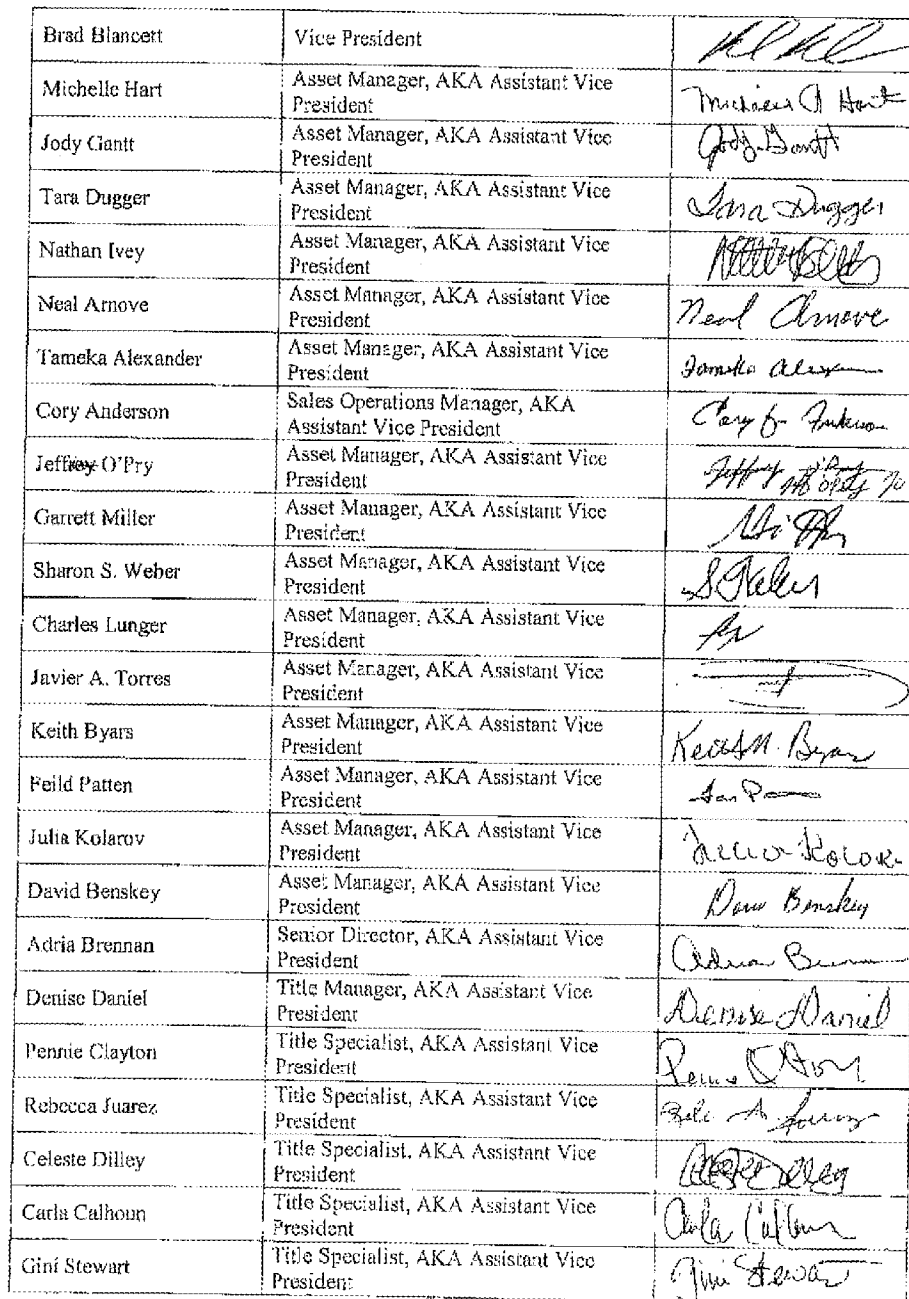 Brad Blancett Vice President
Michelle Hart Asset Manager, AKA Assistant Vice
President
Jody Gantt Asset Manager, AKA Assistant Vice
President Jody Gantt
Tara Dugger Asset Manager, AKA Assistant Vice
President Tara Dugger
Nathan Ivey Asset Manager, AKA Assistant Vice
President
Neal Arnove Asset Manager, AKA Assistant Vice
President Neal Arnove
Tameka Alexander Asset Manager, AKA Assistant Vice
President
Cory Anderson Sales Operations Manager, AKA
Assistant Vice President
Jeffrey O'Pry Asset Manager, AKA Assistant Vice
President
Garrett Miller Asset Manager, AKA Assistant Vice
President
Sharon S. Weber Asset Manager, AKA Assistant Vice
President
Charles Lunger Asset Manager, AKA Assistant Vice
President
Javier A. Torres Asset Manager, AKA Assistant Vice
President
Keith Byars Asset Manager, AKA Assistant Vice
President
Feild Patten Asset Manager, AKA Assistant Vice
President
Julia Kolarov Asset Manager, AKA Assistant Vice
President
David Benskey Asset Manager, AKA Assistant Vice
President Benskey
Adria Brennan Senior Director, AKA Assistant Vice
President
Denise Daniel Title Manager, AKA Assistant Vice
President Denise Daniel
Pennie Clayton Title Specialist, AKA Assistant Vice
President
Rebecca Juarez Title Specialist, AKA Assistant Vice
President
Celeste Dilley Title Specialist, AKA Assistant Vice
President
Carla Calhoun Title Specialist, AKA Assistant Vice
President Carla Calhoun
Gini Stewart Title Specialist, AKA Assistant Vice
President Gini Stewart